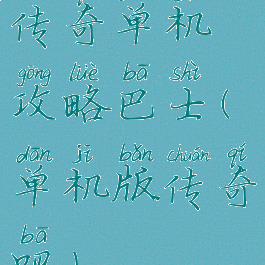 传奇单机
gōng lüè bā shì
攻略巴士(
dān jī bǎn chuán qí
单机版传奇
bā
吧)